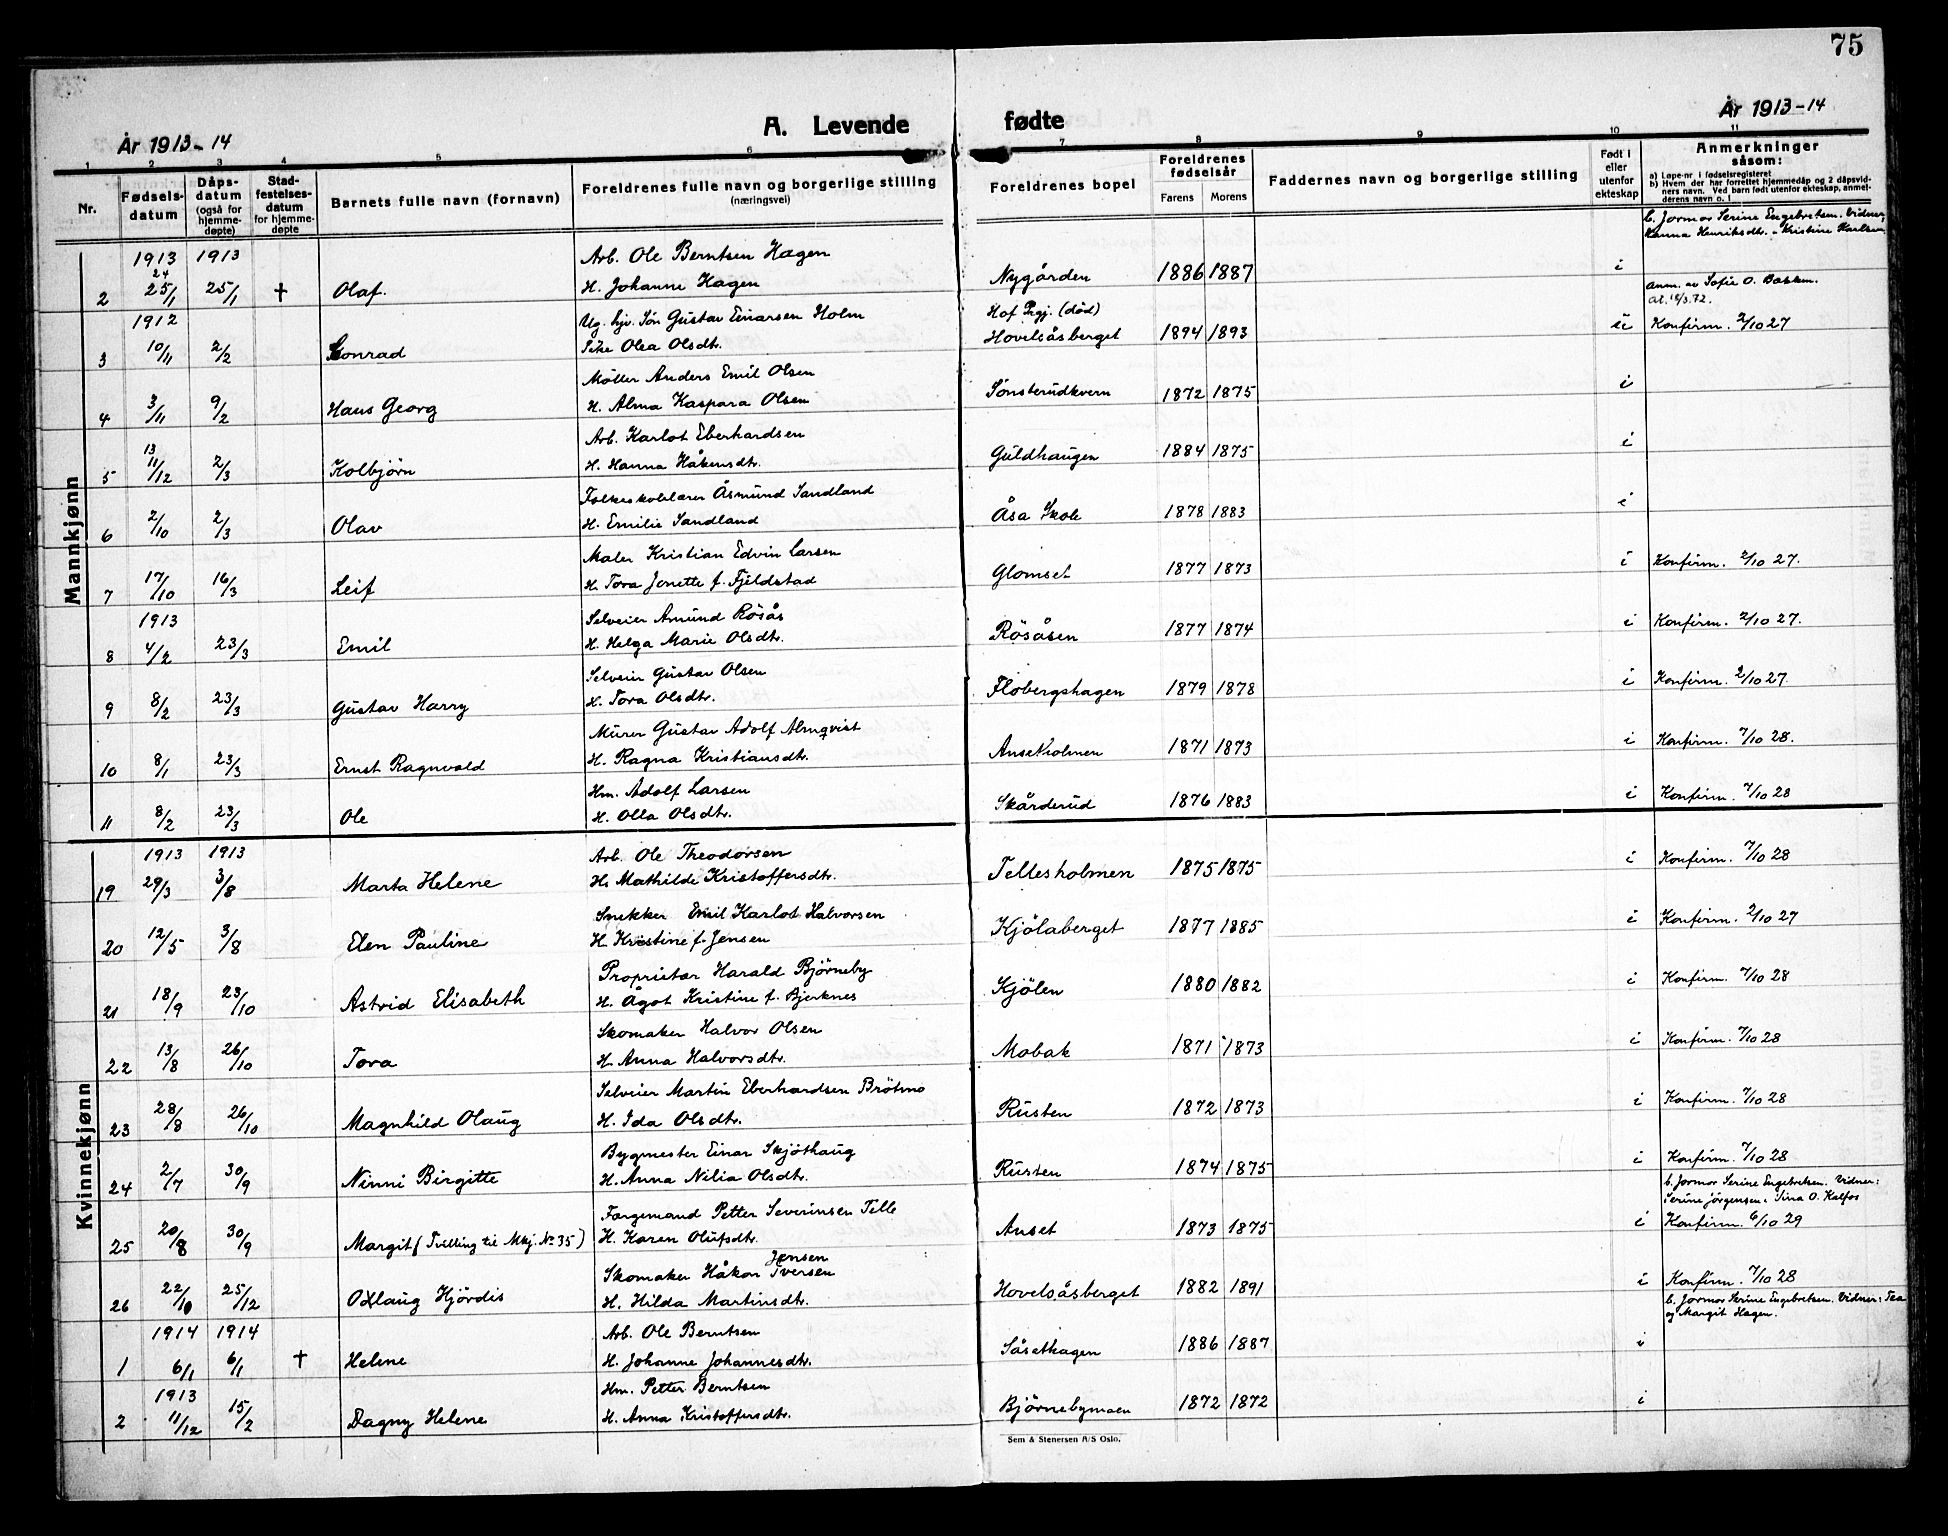 75
År 1913-14
A. Levende fødte
År 1913-14
1 2 3 4 5 6 7 8 9 10 11
Nr. Fødsels-datum Dåps-datum (også for hjemme-døpte) Stad-festelses-datum for hjemme-døpte Barnets fulle navn (fornavn) Foreldrenes fulle navn og borgerlige stilling (næringsvei) Foreldrenes bopel Foreldrenes fødselsår Farens Morens Faddernes navn og borgerlige stilling Født i eller utenfor ekteskap Anmerkninger såsom: a) Løpe-nr i fødselsregisteret b) Hvem der har forrettet hjemmedåp og 2 dåpsvidners navn. Ved barn født utenfor ekteskap, anmelderens navn o. l
Mannkjønn
b. Jormor Serine Engebretsen. Vidner,
Hanna Henriksdtr. - Kristine Karlsen
1913 1913 Arb. Ole Berntsen Hagen
24
2 25/1 25/1 † Olaf. H. Johanne Hagen Nygården 1886 1887 i
anm. av Sofie O. Bakken.
1912 Ug. hjv. Søn Gustav Einarsen Holm Hof Prgj. (død)
3 10/11 2/2 Konrad Pike Olea Olsdtr. Hovelsåsberget 1894 1893 u Konfirm. 2/10 27
Møller Anders Emil Olsen
4 3/11 9/2 Hans Georg H. Alma Kaspara Olsen Sønsterudkvern 1872 1875 i
13 Arb. Karlot Eberhardsen
5 11/12 2/3 Kolbjørn H. Hanna Håkensdtr. Guldhaugen 1884 1875 i
Folkeskolelærer Åsmund Sandland
6 2/10 2/3 Olav H. Emilie Sandland Åsa Skole 1878 1883 i
Maler Kristian Edvin Larsen
7 17/10 16/3 Leif H. Tora Jonette f. Fjeldstad Glomset 1877 1873 i Konfirm. 2/10 27.
1913 Selveier Amund Rösås
8 4/2 23/3 Emil H. Helga Marie Olsdtr. Rösåsen 1877 1874 i Konfirm. 2/10 27.
Selveier Gustav Olsen
9 8/2 23/3 Gustav Harry H. Tora Olsdtr. Flobergshagen 1879 1878 i Konfirm. 2/10 27.
Murer Gustav Adolf Almqvist
10 8/1 23/3 Ernst Ragnvald H. Ragna Kristiansdtr. Ansetholmen 1871 1873 i Konfirm. 7/10 28.
Hm. Adolf Larsen
11 8/2 23/3 Ole H. Olla Olsdtr. Skårderud 1876 1883 i Konfirm. 7/10 28
Kvinnekjønn
1913 1913 Arb. Ole Theodorsen
19 29/3 3/8 Marta Helene H. Mathilde Kristoffersdtr. Tellesholmen 1875 1875 i Konfirm. 7/10 28
Snekker Emil Karlot Halvorsen
20 12/5 3/8 Elen Pauline H. Kristine f. Jensen Kjölaberget 1877 1885 i Konfirm. 2/10 27
Proprietær Harald Bjørneby
21 18/9 23/10 Astrid Elisabeth H. Ågot Kristine f. Bjerknes Kjölen 1880 1882 i Konfirm. 7/10 28
Skomaker Halvor Olsen
22 13/8 26/10 Tora H. Anna Halvorsdtr. Mobak 1871 1873 i Konfirm. 7/10 28
Selveier Martin Eberhardsen Brötmo
23 28/8 26/10 Magnhild Olaug H. Ida Olsdtr. Rusten 1872 1873 i Konfirm. 7/10 28
Bygmester Einar Skjöthaug
24 2/7 30/9 Ninni Birgitte H. Anna Nilia Olsdtr. Rusten 1874 1875 i Konfirm. 7/10 28
b. Jormor Serine Engebretsen. Vidner:
Serine Jörgensen. Sina O. Kalfos
Færgemand Petter Severinsen Telle
25 20/8 30/9 Margit (Tvilling til Mkj. No 35) H. Karen Olufsdtr. Anset 1873 1875 i Konfirm. 6/10 29
Jensen
Skomaker Håkon Iversen
26 22/10 25/12 Oddlaug Hjördis H. Hilda Martinsdtr. Hovelsåsberget 1882 1891 i Konfirm. 7/10 28
b. Jormor Serine Engebretsen. Vidner: Tea
og Margit Hagen.
1914 1914 Arb. Ole Berntsen
1 6/1 6/1 † Helene H. Johanne Johannesdtr. Såsethagen 1886 1887 i
1913 Hm. Petter Berntsen
2 11/12 15/2 Dagny Helene H. Anna Kristoffersdtr. Björnebymoen 1872 1872 i
Sem & Stenersen A/S Oslo.